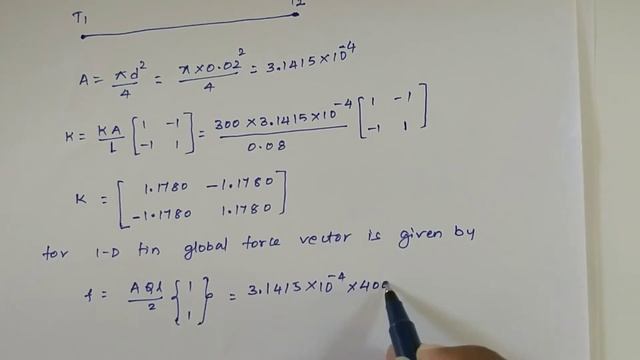 T1 T2
A = πd²/4 = π×0.02²/4 = 3.1415×10⁻⁴
K = KA/L [1 -1; -1 1] = 300×3.1415×10⁻⁴/0.08 [1 -1; -1 1]
K = [1.1780 -1.1780; -1.1780 1.1780]
for 1-D fin global force vector is given by
f = AQl/2 {1; 1} = 3.1415×10⁻⁴×400